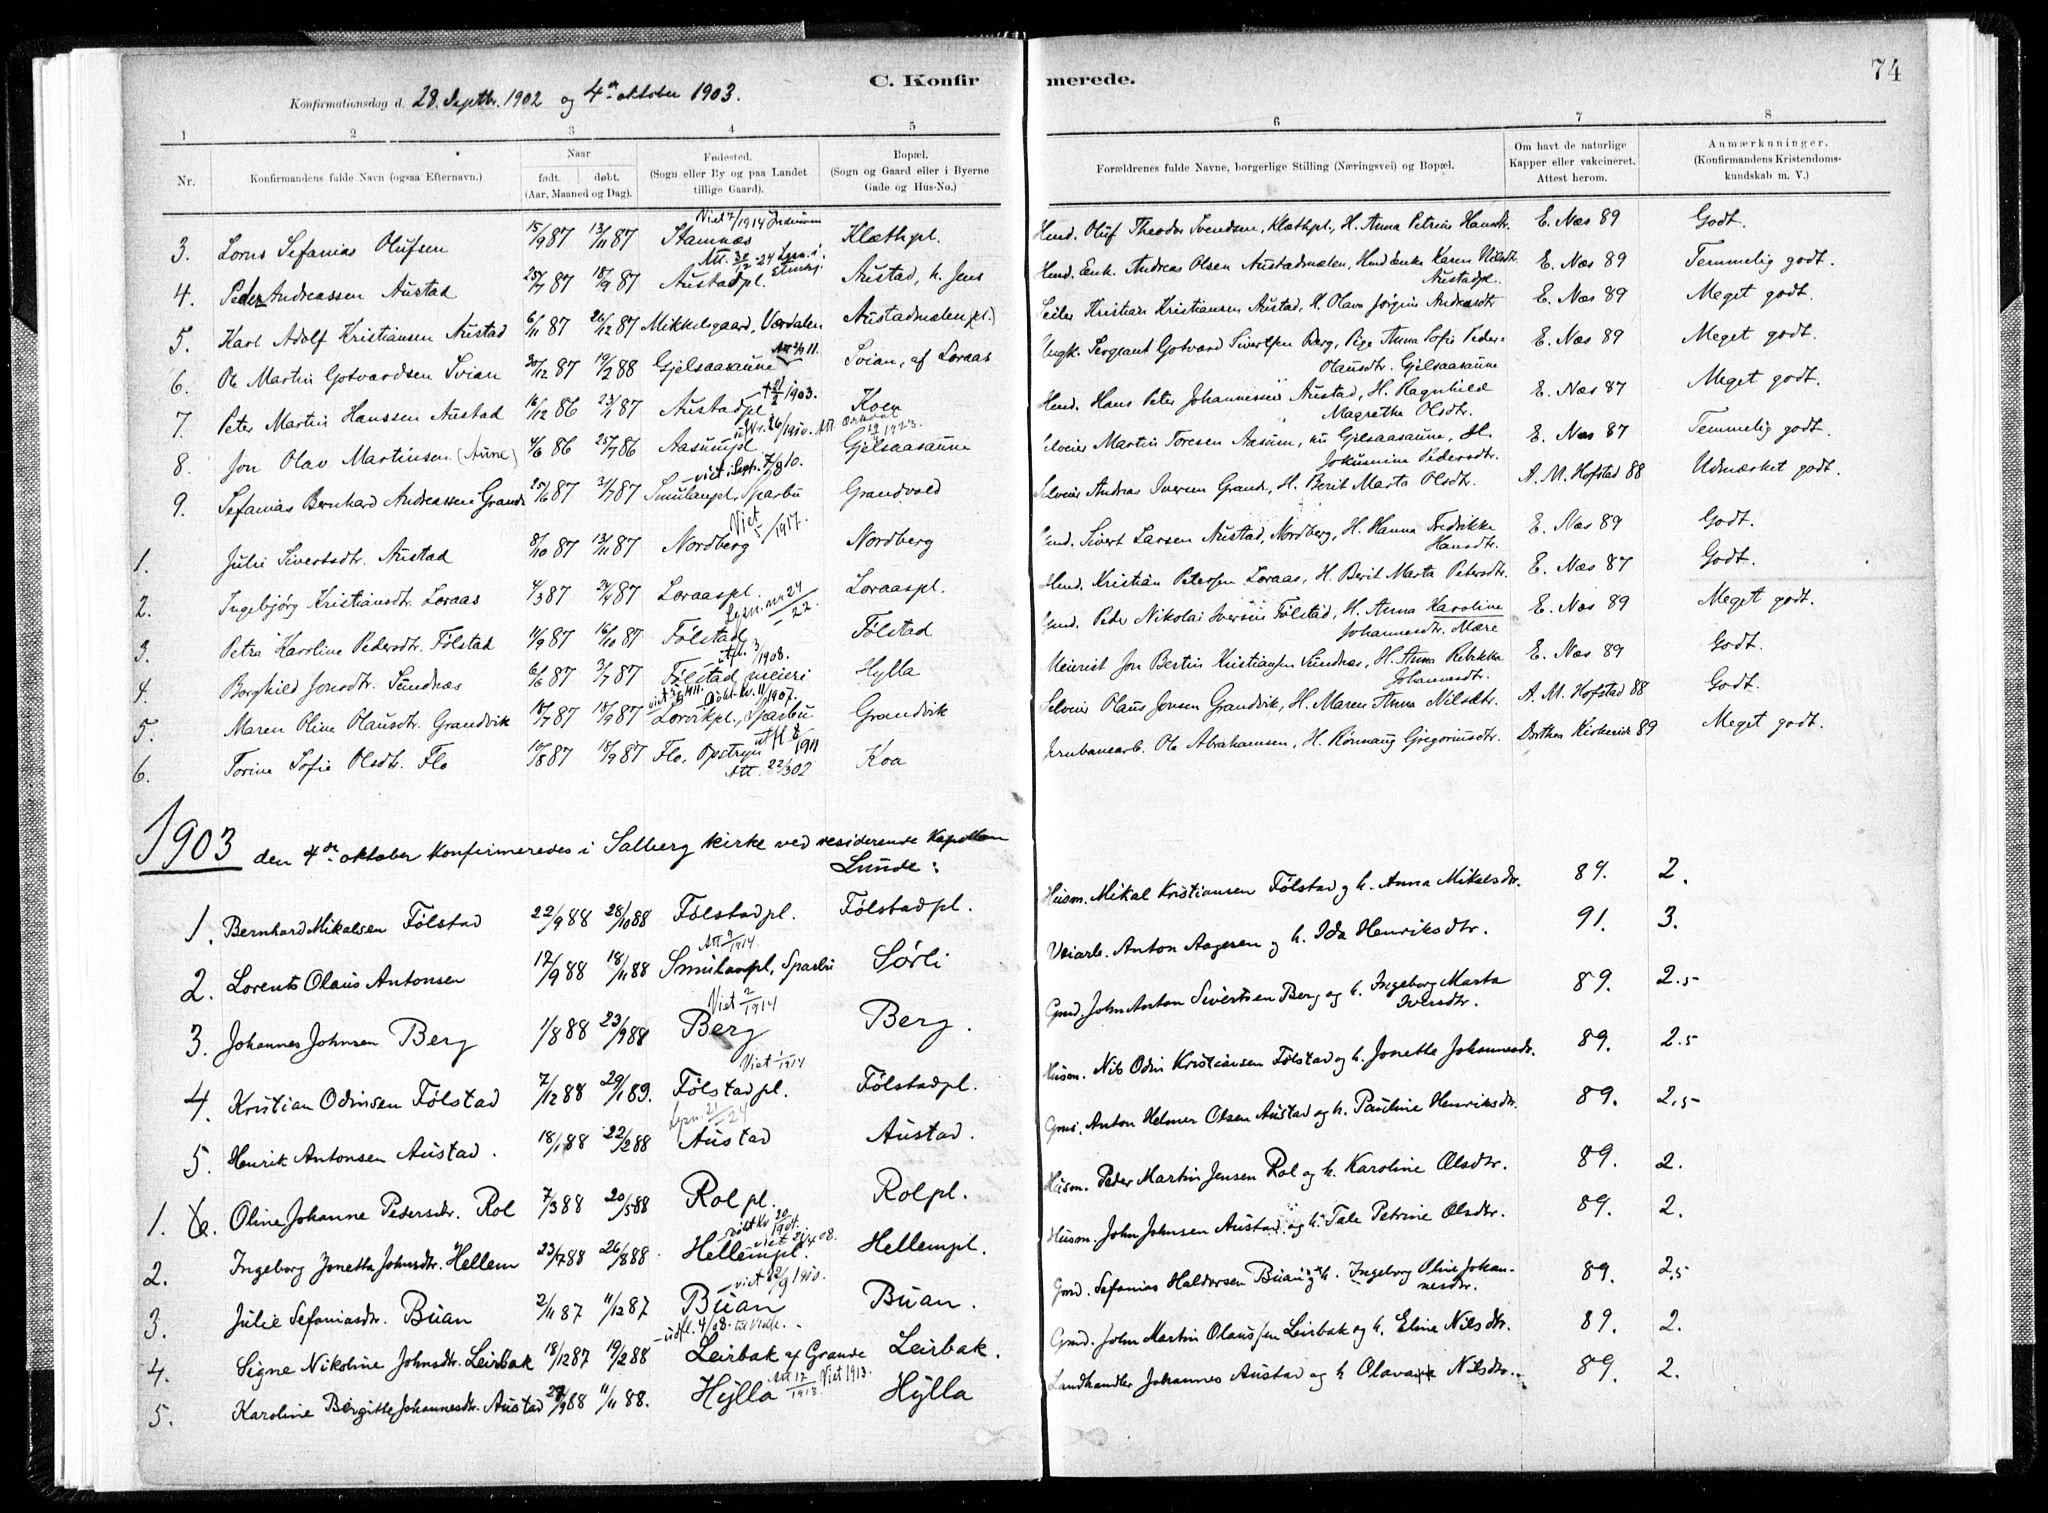 C. Konfir merede. 74
Konfirmationsdag d. 28. Septbr. 1902 og 4de oktober 1903.
1 2 3 4 5 6 7 8
Nr. Konfirmandens fulde Navn (ogsaa Efternavn.)
Naar
født. døbt.
(Aar, Maaned og Dag).
Fødested.
(Sogn eller By og paa Landet
tillige Gaard).
Bopæl.
(Sogn og Gaard eller i Byerne
Gade og Hus-No.)
Forældrenes fulde Navne, borgerlige Stilling (Næringsvei) og Bopæl.
Om havt de naturlige
Kapper eller vakcineret.
Attest herom.
Anmærkninger.
(Konfirmandens Kristendoms-
kundskab m. V.)
Viet 7/1914 Inderøen
3. Lorns Sefanias Olufsen 15/9 87 13/11 87 Stamnæs Klæthpl. Hmd. Oluf Theodor Svendsen, Klæthpl., H. Anna Petrine Hansdtr. E. Næs 89 Godt.
4. Peder Andreassen Austad 25/7 87 18/9 87 Austadpl. Austad, h. Jens Hmd. Enk. Andreas Olsen Austadmælen, Hmd Enke Karen Nilsdtr. E. Næs 89 Temmelig godt.
Austadpl.
5. Karl Adolf Kristiansen Austad 6/11 87 26/12 87 Mikkelsgaard, Værdalen Austadmælen pl.) Seiler Kristian Kristiansen Austad, H. Olava Jørgine Andreasdtr E. Næs 89 Meget godt.
6. Ole Martin Gotvardsen Svian 30/12 87 19/2 88 Gjelsaasaune Svian, af Loraas Ungk. Sergeant Gotvard Sivertsen Berg, Pige Anna Sofie Peder- E. Næs 89 Meget godt.
Olausdtr. Gjelsaasaune
† 21/2 1903.
7. Peter Martin Hanssen Austad 16/12 86 23/1 87 Austadpl Koen Hmd. Hans Peter Johannessen Austad, H. Ragnhild E. Næs 87 Meget godt.
Magrethe Olsdtr.
8. Jon Olav Martinsen (Aune) 4/6 86 25/7 86 Aasumpl Gjelsaasaune Selveier Martin Toresen Aasum, nu Gjelsaasaune, H. E. Næs 87 Temmelig godt.
Jokumine Pedersdtr.
viet i Septr. 7/8 10.
9. Sefanias Bernhard Andreassen Grande 25/6 87 31/7 87 Smulanpl, Sparbu Grandvold Selveier Andreas Iversen Grande, H. Berit Marta Olsdtr. A. M. Hofstad 88 Udmærket godt.
Viet /1917.
1. Julie Sivertsdtr. Austad 8/10 87 13/11 87 Nordberg Nordberg Gmd. Sivert Larsen Austad, Nordberg, H. Hanna Fredrikke E. Næs 89 Godt.
Hansdtr.
2. Ingebjørg Kristiansdtr. Loraas 4/3 87 24/4 87 Loraaspl. Loraaspl. Hmd. Kristian Petersen Loraas, H. Berit Marta Petersdtr. E. Næs 87 Godt.
3. Petra Karoline Pedersdtr. Følstad 11/9 87 16/10 87 Følstad Følstad Gmd. Peder Nikolai Iversen Følstad, H. Anna Karoline E. Næs 89 Meget godt.
Johannesdtr. Mære
utfl. 3/1908.
4. Borghild Jonsdtr. Sundnæs 6/6 87 3/7 87 Følstad meieri Hylla Meierist Jon Bertin Kristiansen Sundnæs, H. Anna Rebekka E. Næs 89 Godt.
Johannesdtr.
5. Maren Oline Olausdtr. Grandvik 18/7 87 18/9 87 Lorvikpl., Sparbu Grandvik Selveier Olaus Jonsen Grandvik, H. Maren Anna Nilsdtr. A. M. Hofstad 88 Godt.
utfl 8/1911
6. Torine Sofie Olsdtr. Flo 10/8 87 18/9 87 Flo, Opstryn Koa Jernbanearb. Ole Abrahamsen, H. Rønnaug Gregoriusdtr. Dorthea Kirkeeide 89 Meget godt.
Att. 22/3 02
1903 den 4de oktober konfirmeredes i Salberg kirke ved residerende Kapellan
Lunde:
1. Bernhard Mikalsen Følstad 22/9 88 28/10 88 Følstadpl. Følstadpl. Husm. Mikal Kristiansen Følstad og h. Anna Mikelsdtr. 89. 2.
Att 9/1914.
2. Lorents Olaus Antonsen 17/9 88 18/11 88 Smulanpl, Sparbu Sørli Veiarb. Anton Aagesen og h. Ida Henriksdtr. 91. 3.
Viet 2/1914
3. Johannes Johnsen Berg 1/8 88 23/9 88 Berg Berg. Gmd. John Anton Sivertsen Berg og h. Ingeborg Marta 89. 2.5
Iversdtr.
Viet 1/1914
4. Kristian Odinsen Følstad 7/12 88 29/1 89. Følstadpl. Følstadpl. Husm. Nils Odin Kristiansen Følstad og h. Jonetta Johannesdr. 89. 2.5
5. Henrik Antonsen Austad. 18/1 88 22/2 88 Austad Austad. Gmd. Anton Helmer Olsen Austad og h. Pauline Henriksdtr. 89. 2.5
1. Oline Johanne Pedersdtr. Rol 7/3 88 20/5 88 Rolpl. Rolpl. Husm. Peder Martin Jensen Rol og h. Karoline Olsdtr. 89. 2.
2. Ingeborg Jonetta Johnsdtr. Hellem 23/7 88 26/8 88. Hellempl. Hellempl. Husm. John Johnsen Austad og h. Tale Petrine Olsdtr. 89. 2.
viet 22/9 1910.
3. Julie Sefaniasdtr. Buan 2/11 87 11/12 87 Buan Buan. Gmd. Sefanias Haldorsen Buan og h. Ingeborg Oline Johan- 89. 2.5
nesdtr.
4. Signe Nikoline Johnsdtr. Leirbak 18/12 87 19/2 88 Leirbak af Grande Leirbak. Gmd. John Martin Olaussen Leirbak og h. Eline Nilsdtr. 89. 2.
Att 17/1913. Viet 1913.
5. Karoline Bergitte Johannesdtr. Austad 27/9 88 11/11 88. Hylla Hylla Landhandler Johannes Austad og h Olava Nilsdtr. 89. 2.